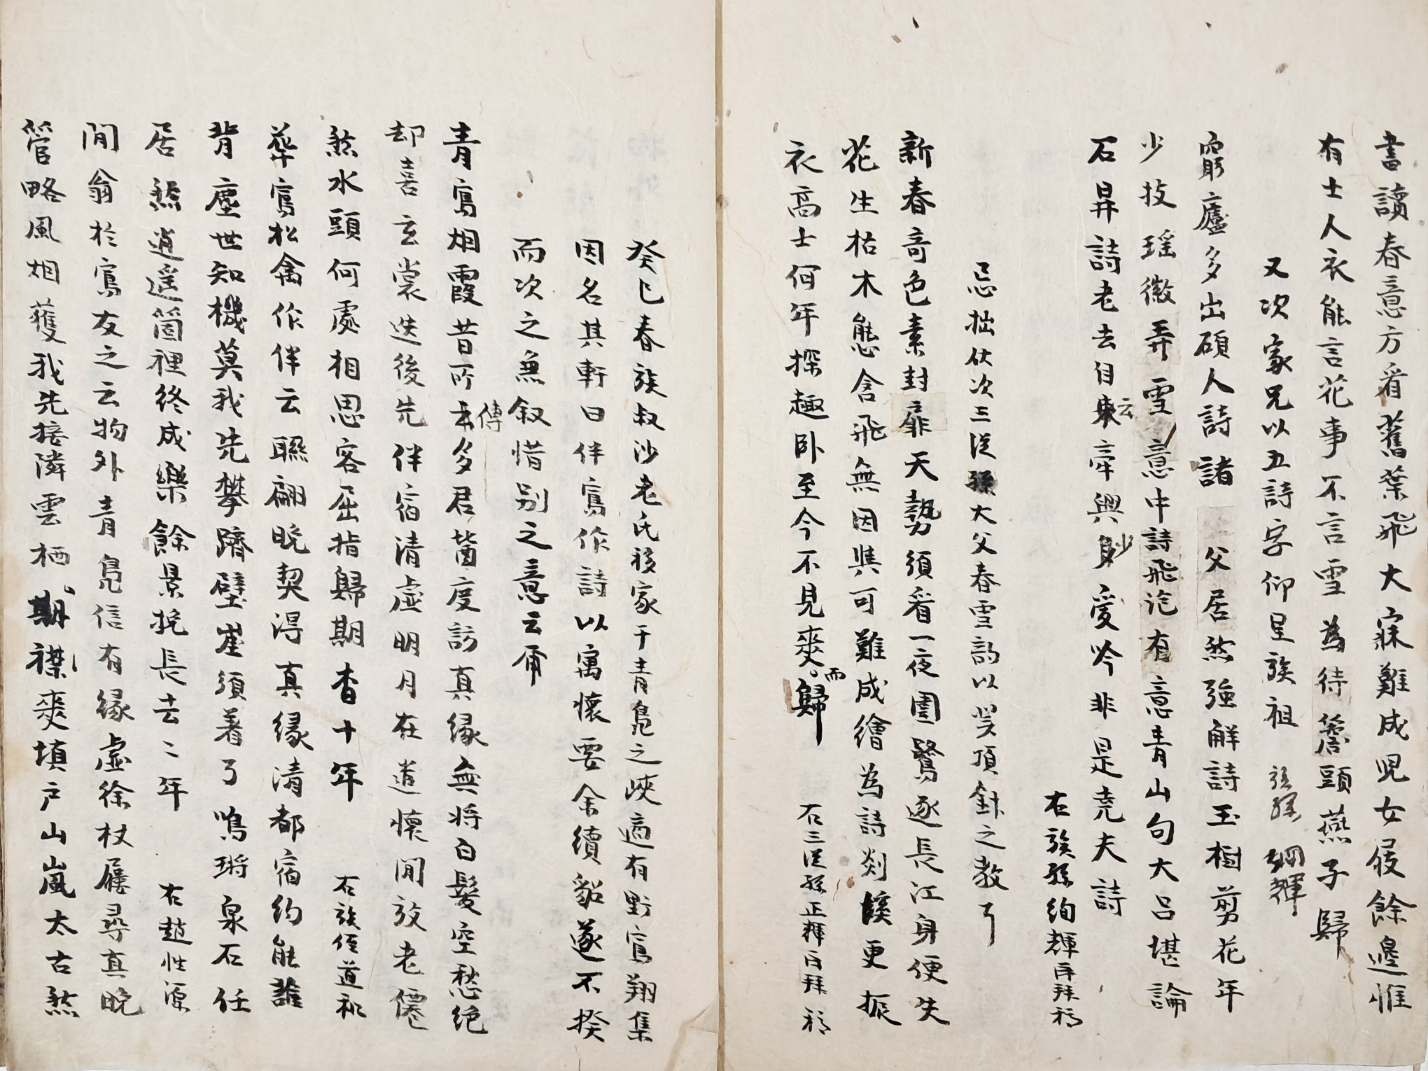 書讀春意方看舊葉飛大寐難成兒女屐餘邊惟
有士人衣能言花事不言雪為待簷頭燕子歸
又次家兄以五詩字仰呈族祖 族孫 綱輝
窮廬多出碩人詩諸父居然強解詩玉樹剪花年
少技瑤徽弄雪意中詩飛沱有意青山句大呂堪論
石昇詩老去自云牽興少愛吟非是堯夫詩
右族孫絢輝再拜稿
忌拙伏次三從孫大父春雪韵以笑頂針之教了
新春奇色素封扉天勢須看一夜圍鷺逐長江身便失
花生枯木態含飛無因興可難成繪為詩剡溪更振
衣高士何年探趣卧至今不見爽而歸
右三從孫正輝再拜稿
癸巳春族叔沙老氏移家于青鳧之峽適有野鶴翔集
因名其軒曰伴鶴作詩以寓懷要余續貂遂不揆
而次之兼叙惜别之意云爾
青鶴烟霞昔所傳多君箇度訪真緣無將白髮空愁絶
却喜玄裳迭後先伴宿清虛明月在道懷閒放老僊
然水頭何處相思客屈指歸期杳十年 右族侄道和
華鶴松禽作伴云聯翩晚契淂真緣清都宿約能誰
背塵世知機莫我先攀躋壁崖須着了鳴琊泉石任
居然逍遥箇裡終成樂餘景挽長去〻年 右趙性源
閒翁於鶴友之云物外青鳧信有緣虛徐杖屨尋真晚
管略風烟獲我先接隣雲栖期襟爽填户山嵐太古然